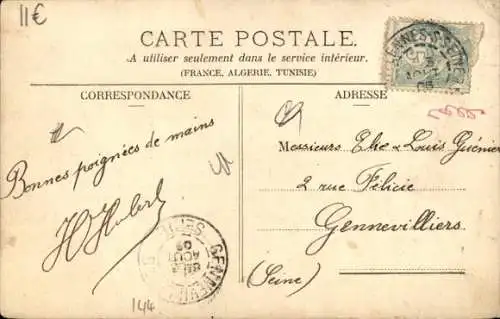 11€
CARTE POSTALE.
A utiliser seulement dans le service intérieur.
(FRANCE, ALGERIE, TUNISIE)
CORRESPONDANCE
ADRESSE
Bonnes poignées de mains
H Hubert
Messieurs Elie & Louis Guénier
2 rue Félicie
Gennevilliers
(Seine)
GENNEVI
SEINE
AOUT
144